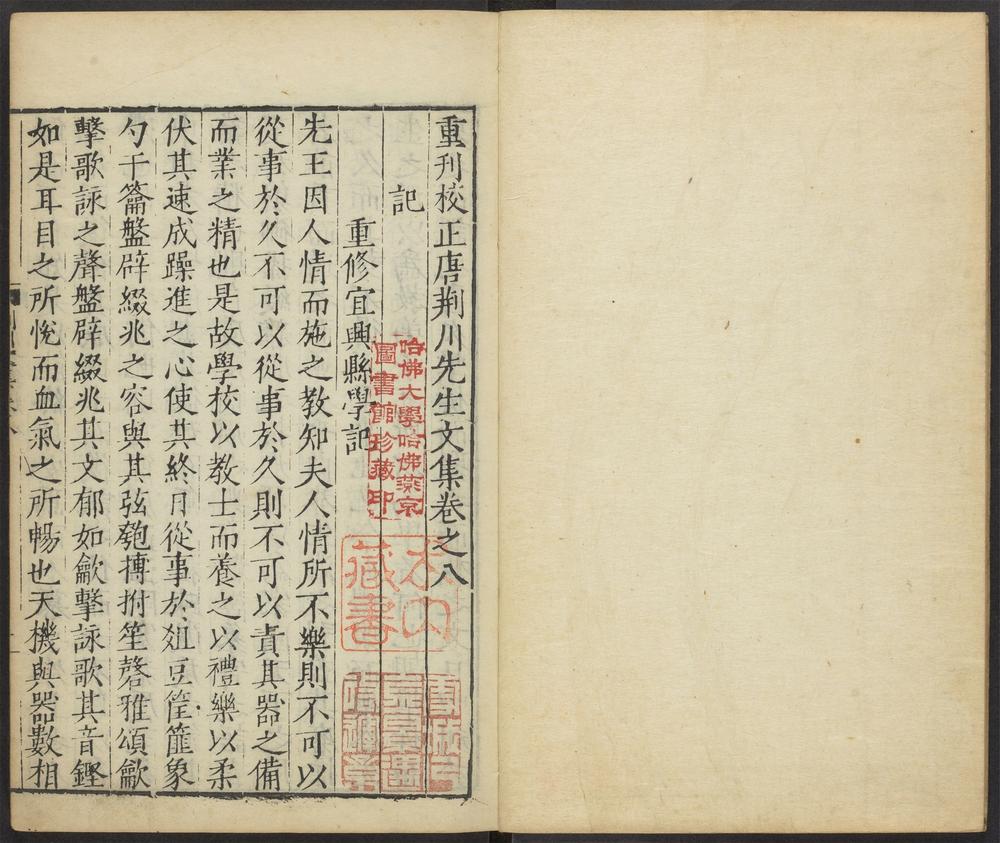 重刊校正唐荆川先生文集卷之八
記
重修宜興縣學記
先王因人情而施之教知夫人情所不樂則不可以
從事於久不可以從事於久則不可以責其器之備
而業之精也是故學校以教士而養之以禮樂以柔
伏其速成躁進之心使其終日從事於俎豆筐篚象
勺干籥盤辟綴兆之容與其弦匏搏拊笙磬雅頌歈
擊歌詠之聲盤辟綴兆其文郁如歈擊詠歌其音鏗
如是耳目之所悅而血氣之所暢也天機與器數相
哈佛大學哈佛燕京
圖書館珍藏印
藏書